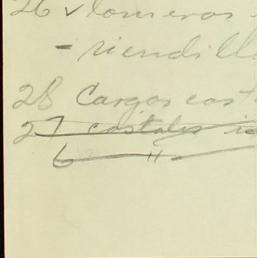 26 ✓ lomeros
- riendill
28 Cargos cost
27 costales i
6 "